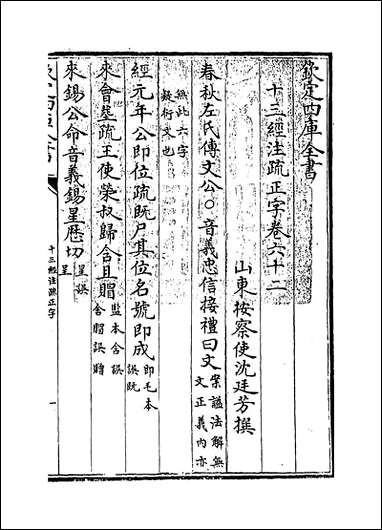 欽定四庫全書
十三經注疏正字卷六十二
山東按察使沈廷芳撰
春秋左氏傳文公○音義忠信接禮曰文案謚法解無文正義內亦
無此六字疑衍文也
經元年公即位疏既尸其位名號即成即毛本誤既
來會葬疏王使榮叔歸含且賵監本含誤舍賵誤贈
來錫公命音義錫星歷切星誤呈
十三經注疏正字
一